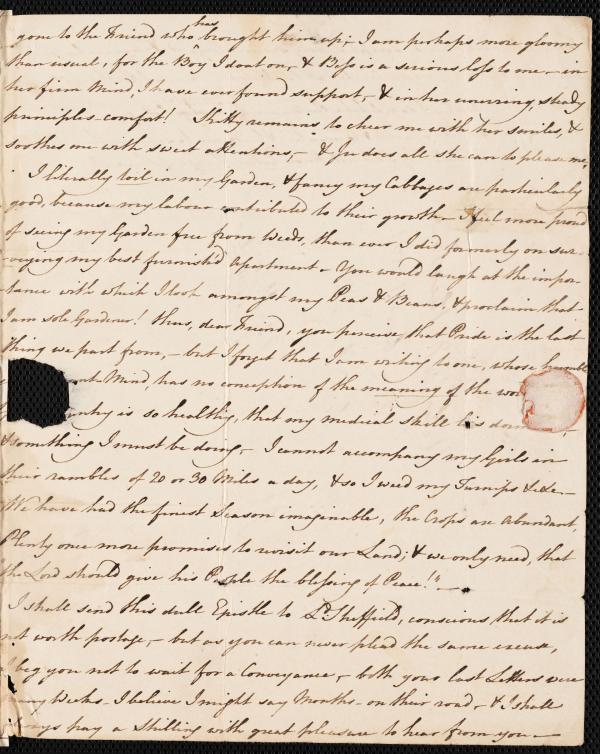 gone to the Friend who has brought him up; I am perhaps more gloomy
than usual, for the Boy I doat on, & Bess is a serious loss to me, – in
her firm Mind, I have ever found support, – & in her unerring, steady
principles comfort! Kitty remains to chear me with her smiles, &
soothes me with sweet attentions, – & Ju does all she can to please me,
I literally toil in my Garden, & fancy my Cabbages are particularly
good, because my labour contributed to their growth – I feel more proud
of seeing my Garden free from Weeds, than ever I did formerly on sur-
-veying my best furnish'd Apartment – You would laugh at the impor-
tance with which I look amongst my Peas & Beans, & proclaim that
I am sole Gardener! thus, dear Friend, you perceive that Pride is the last
thing we part from, – but I forget that I am writing to one, whose humble
Mind, has no conception of the meaning of the wor
is so healthy, that my medical skill lies
& something I must be doing – I cannot accompany my Girls in
their rambles of 20 or 30 Miles a day, & so I weed my Turnips
We have had the finest Season imaginable, the Crops are Abundant,
Plenty once more promises to revisit our Land; & we only need, that
the Lord should give his People the blessing of Peace!" –
I shall send this dull Epistle to Ld. Sheffield, conscious that it is
not worth postage, – but as you can never plead the same excuse,
I beg you not to wait for a Conveyance – both your last Letters were
many Weeks – I believe I might say Months – on their road, – & I shall
always pay a Shilling with great pleasure to hear from you –